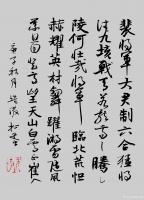 裴將軍大君制六合猛將
清九垓戰馬若龍虎騰
陵何壯哉將軍臨北荒烜
赫耀英材劍舞躍游電隨風
縈且回登高望天山白雲正崔
秋月